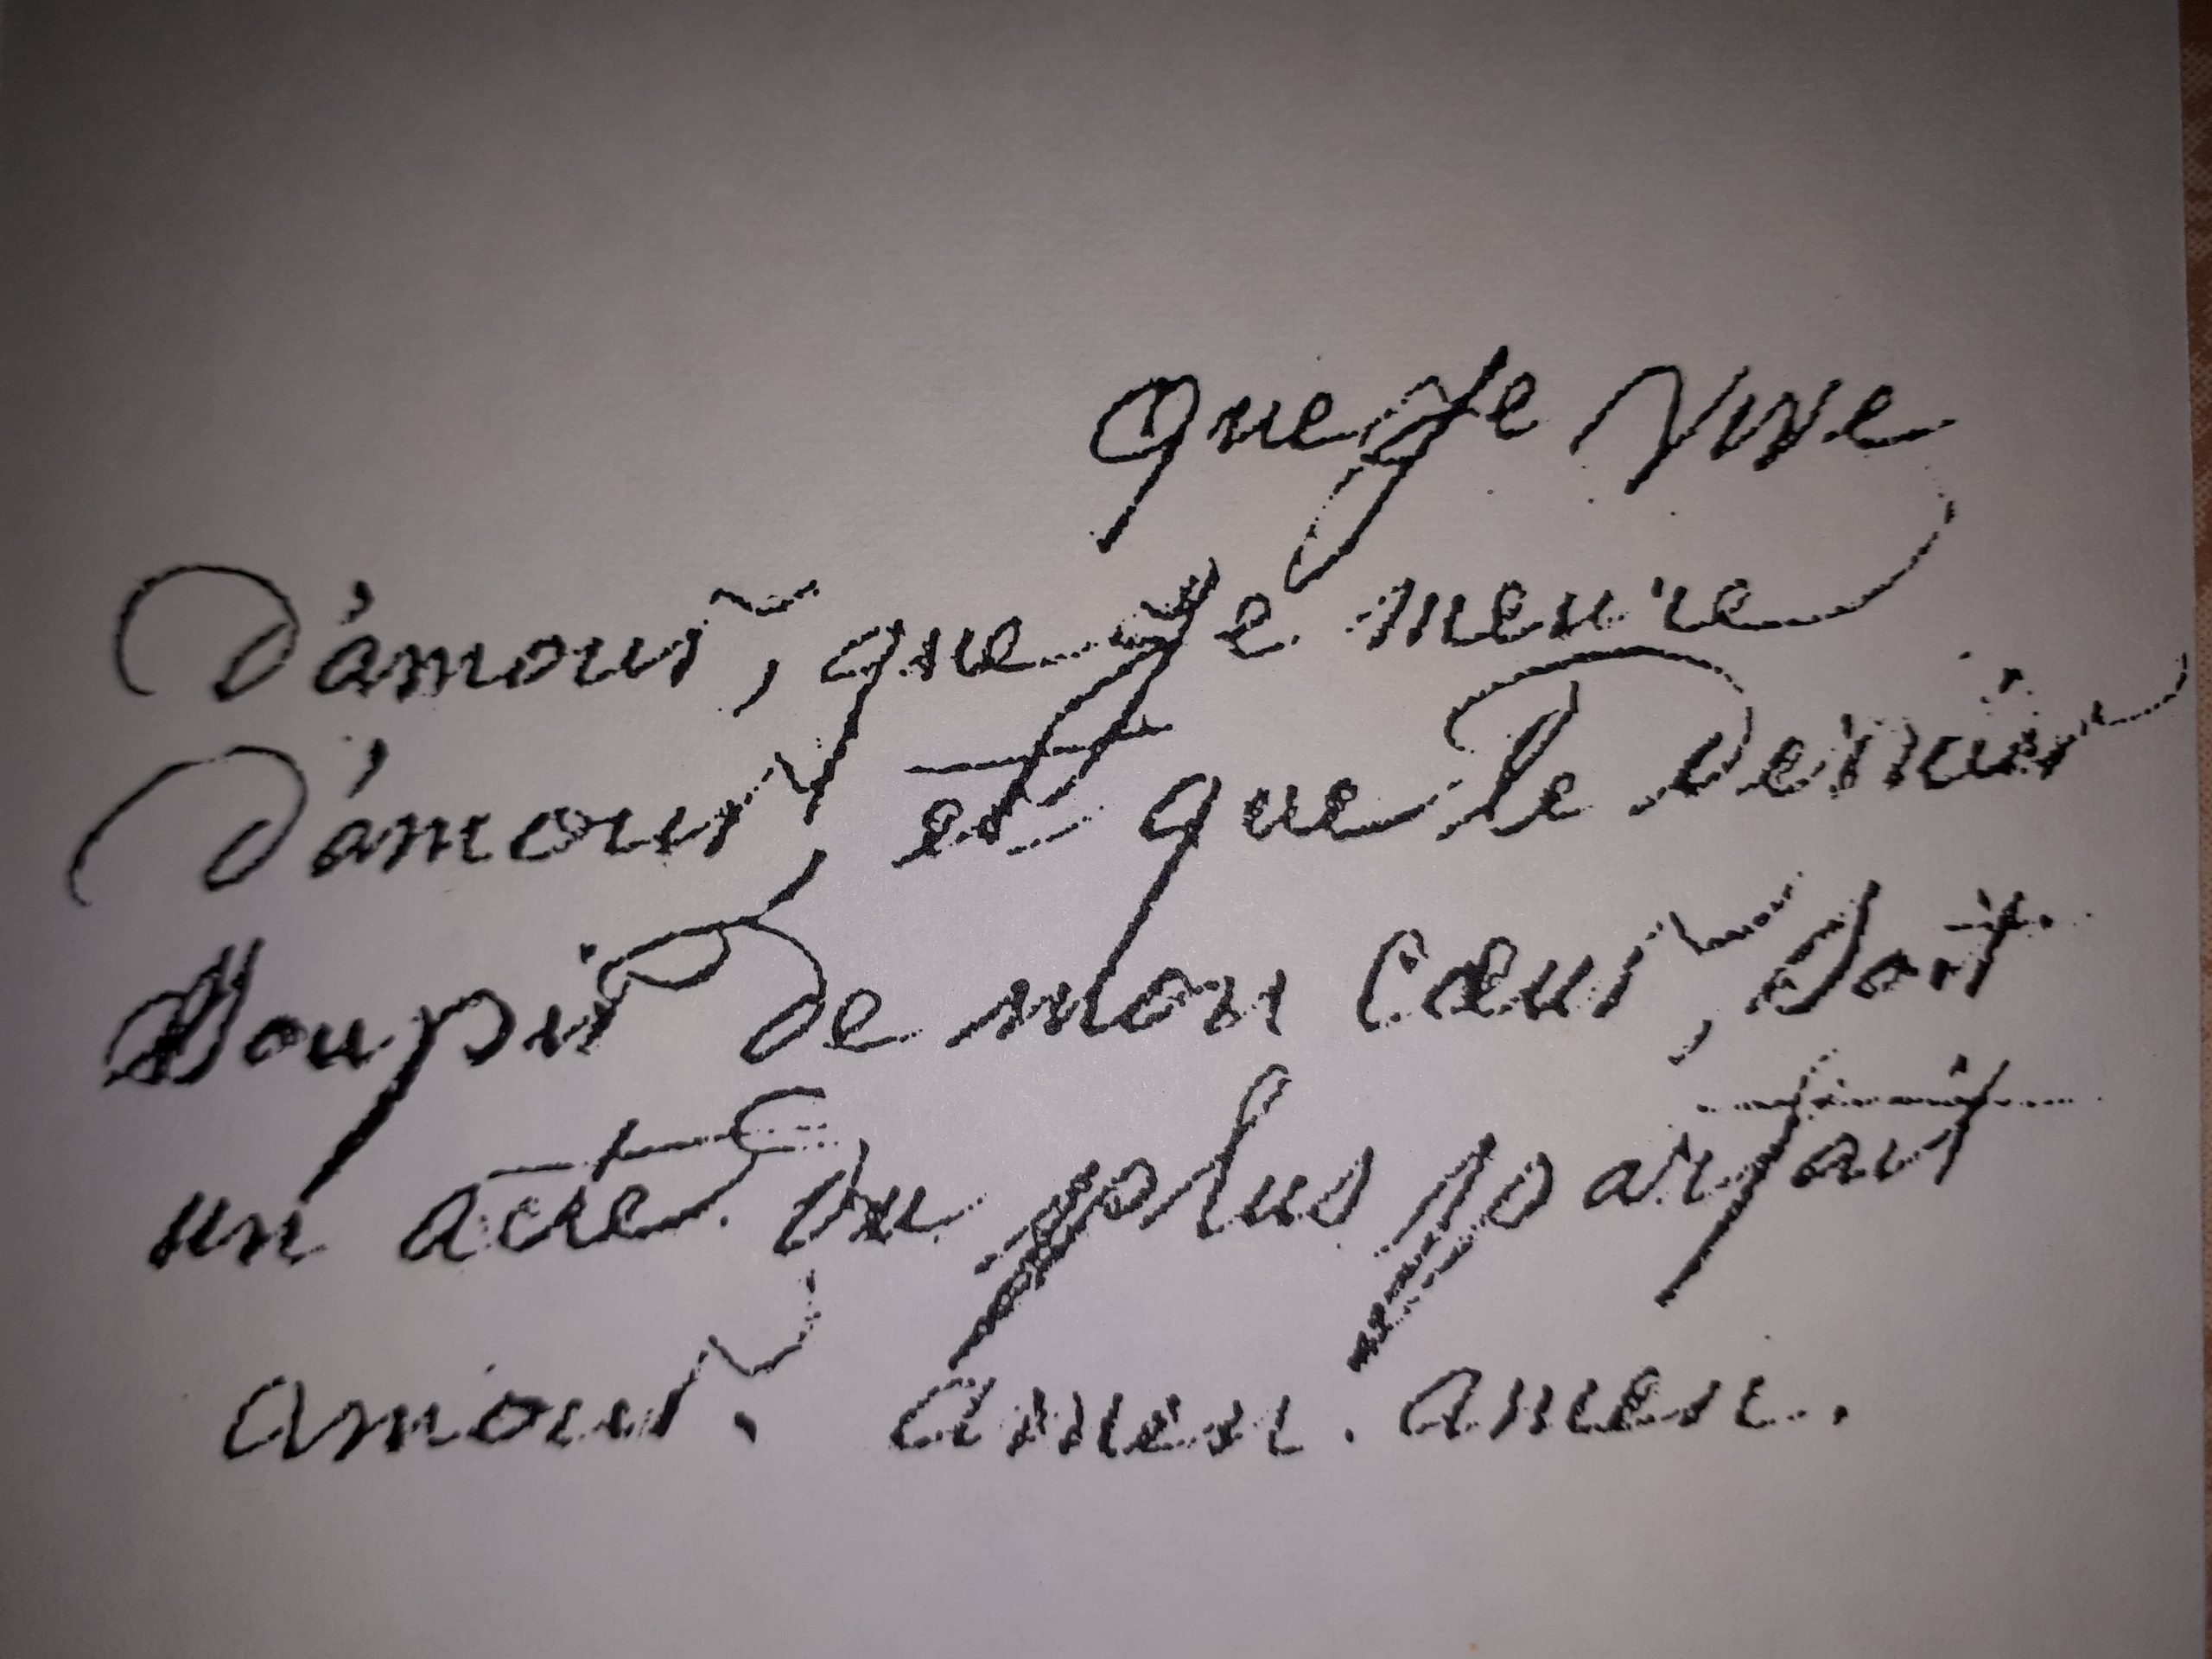 que Je vive
D'amour, que Je meure
D'amour, et que le Dernier
Soupir De mon Cœur, Soit
un acte Du plus parfait
amour. amen. amen.